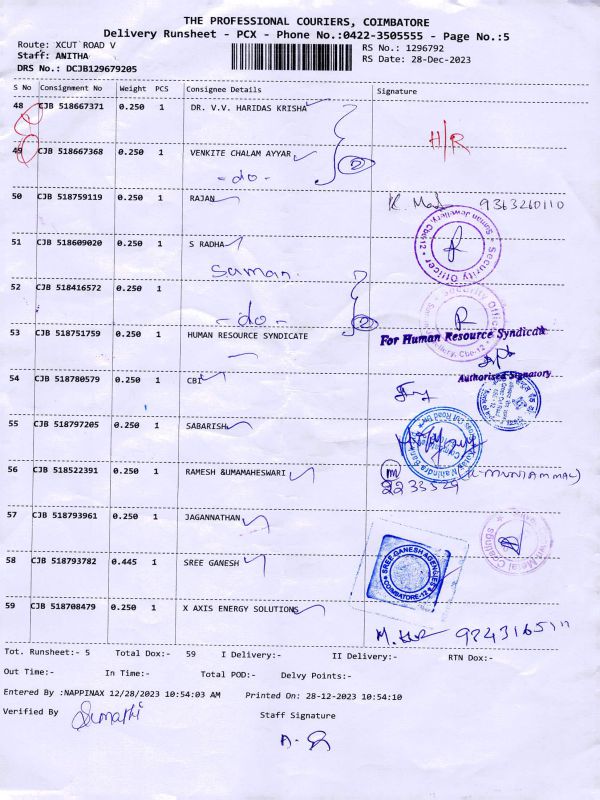 THE PROFESSIONAL COURIERS, COIMBATORE
Delivery Runsheet - PCX - Phone No.:0422-3505555 - Page No.:5
Route: XCUT ROAD V
RS No.: 1296792
Staff: ANITHA
RS Date: 28-Dec-2023
DRS No.: DCJB129679205
S No Consignment No Weight PCS Consignee Details Signature
48 CJB 518667371 0.250 1 DR. V.V. HARIDAS KRISHA
H/R
49 CJB 518667368 0.250 1 VENKITE CHALAM AYYAR
2
- do -
50 CJB 518759119 0.250 1 RAJAN
9363260110
51 CJB 518609020 0.250 1 S RADHA
Suman Jewellery, Cbe-12 * Security Officer *
Suman
52 CJB 518416572 0.250 1
- do -
2
Security Officer
53 CJB 518751759 0.250 1 HUMAN RESOURCE SYNDICATE
For Human Resource Syndicate
Authorised Signatory
54 CJB 518780579 0.250 1 CBI
55 CJB 518797205 0.250 1 SABARISH
Mahindra Bank
56 CJB 518522391 0.250 1 RAMESH &UMAMAHESWARI
m
2233529
57 CJB 518793961 0.250 1 JAGANNATHAN
58 CJB 518793782 0.445 1 SREE GANESH
SREE GANESH AGENCIES
COIMBATORE-12
59 CJB 518708479 0.250 1 X AXIS ENERGY SOLUTIONS
Tot. Runsheet:- 5 Total Dox:- 59 I Delivery:- II Delivery:- RTN Dox:-
Out Time:- In Time:- Total POD:- Delvy Points:-
Entered By :NAPPINAX 12/28/2023 10:54:03 AM Printed On: 28-12-2023 10:54:10
Verified By Sumathi
Staff Signature